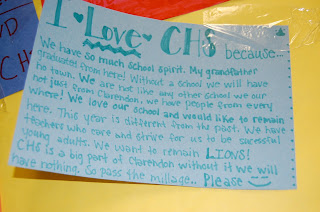 I Love CHS because...
We have so much school spirit. My grandfather
graduated from here! Without a school we will have
no town. We are not like any other school we our
not just from Clarendon, we have people from every
where! We love our school and would like to remain
here. This year is different from the past. We have
teachers who care and strive for us to be sucessful
young adults. We want to remain LIONS!
CHS is a big part of Clarendon without it we will
have nothing. So pass the millage.. Please
CHS